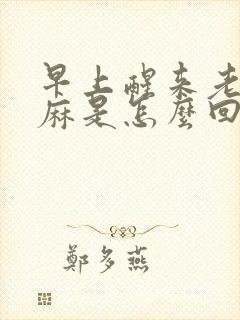 早上醒来老
麻是怎麼回
鄭多燕